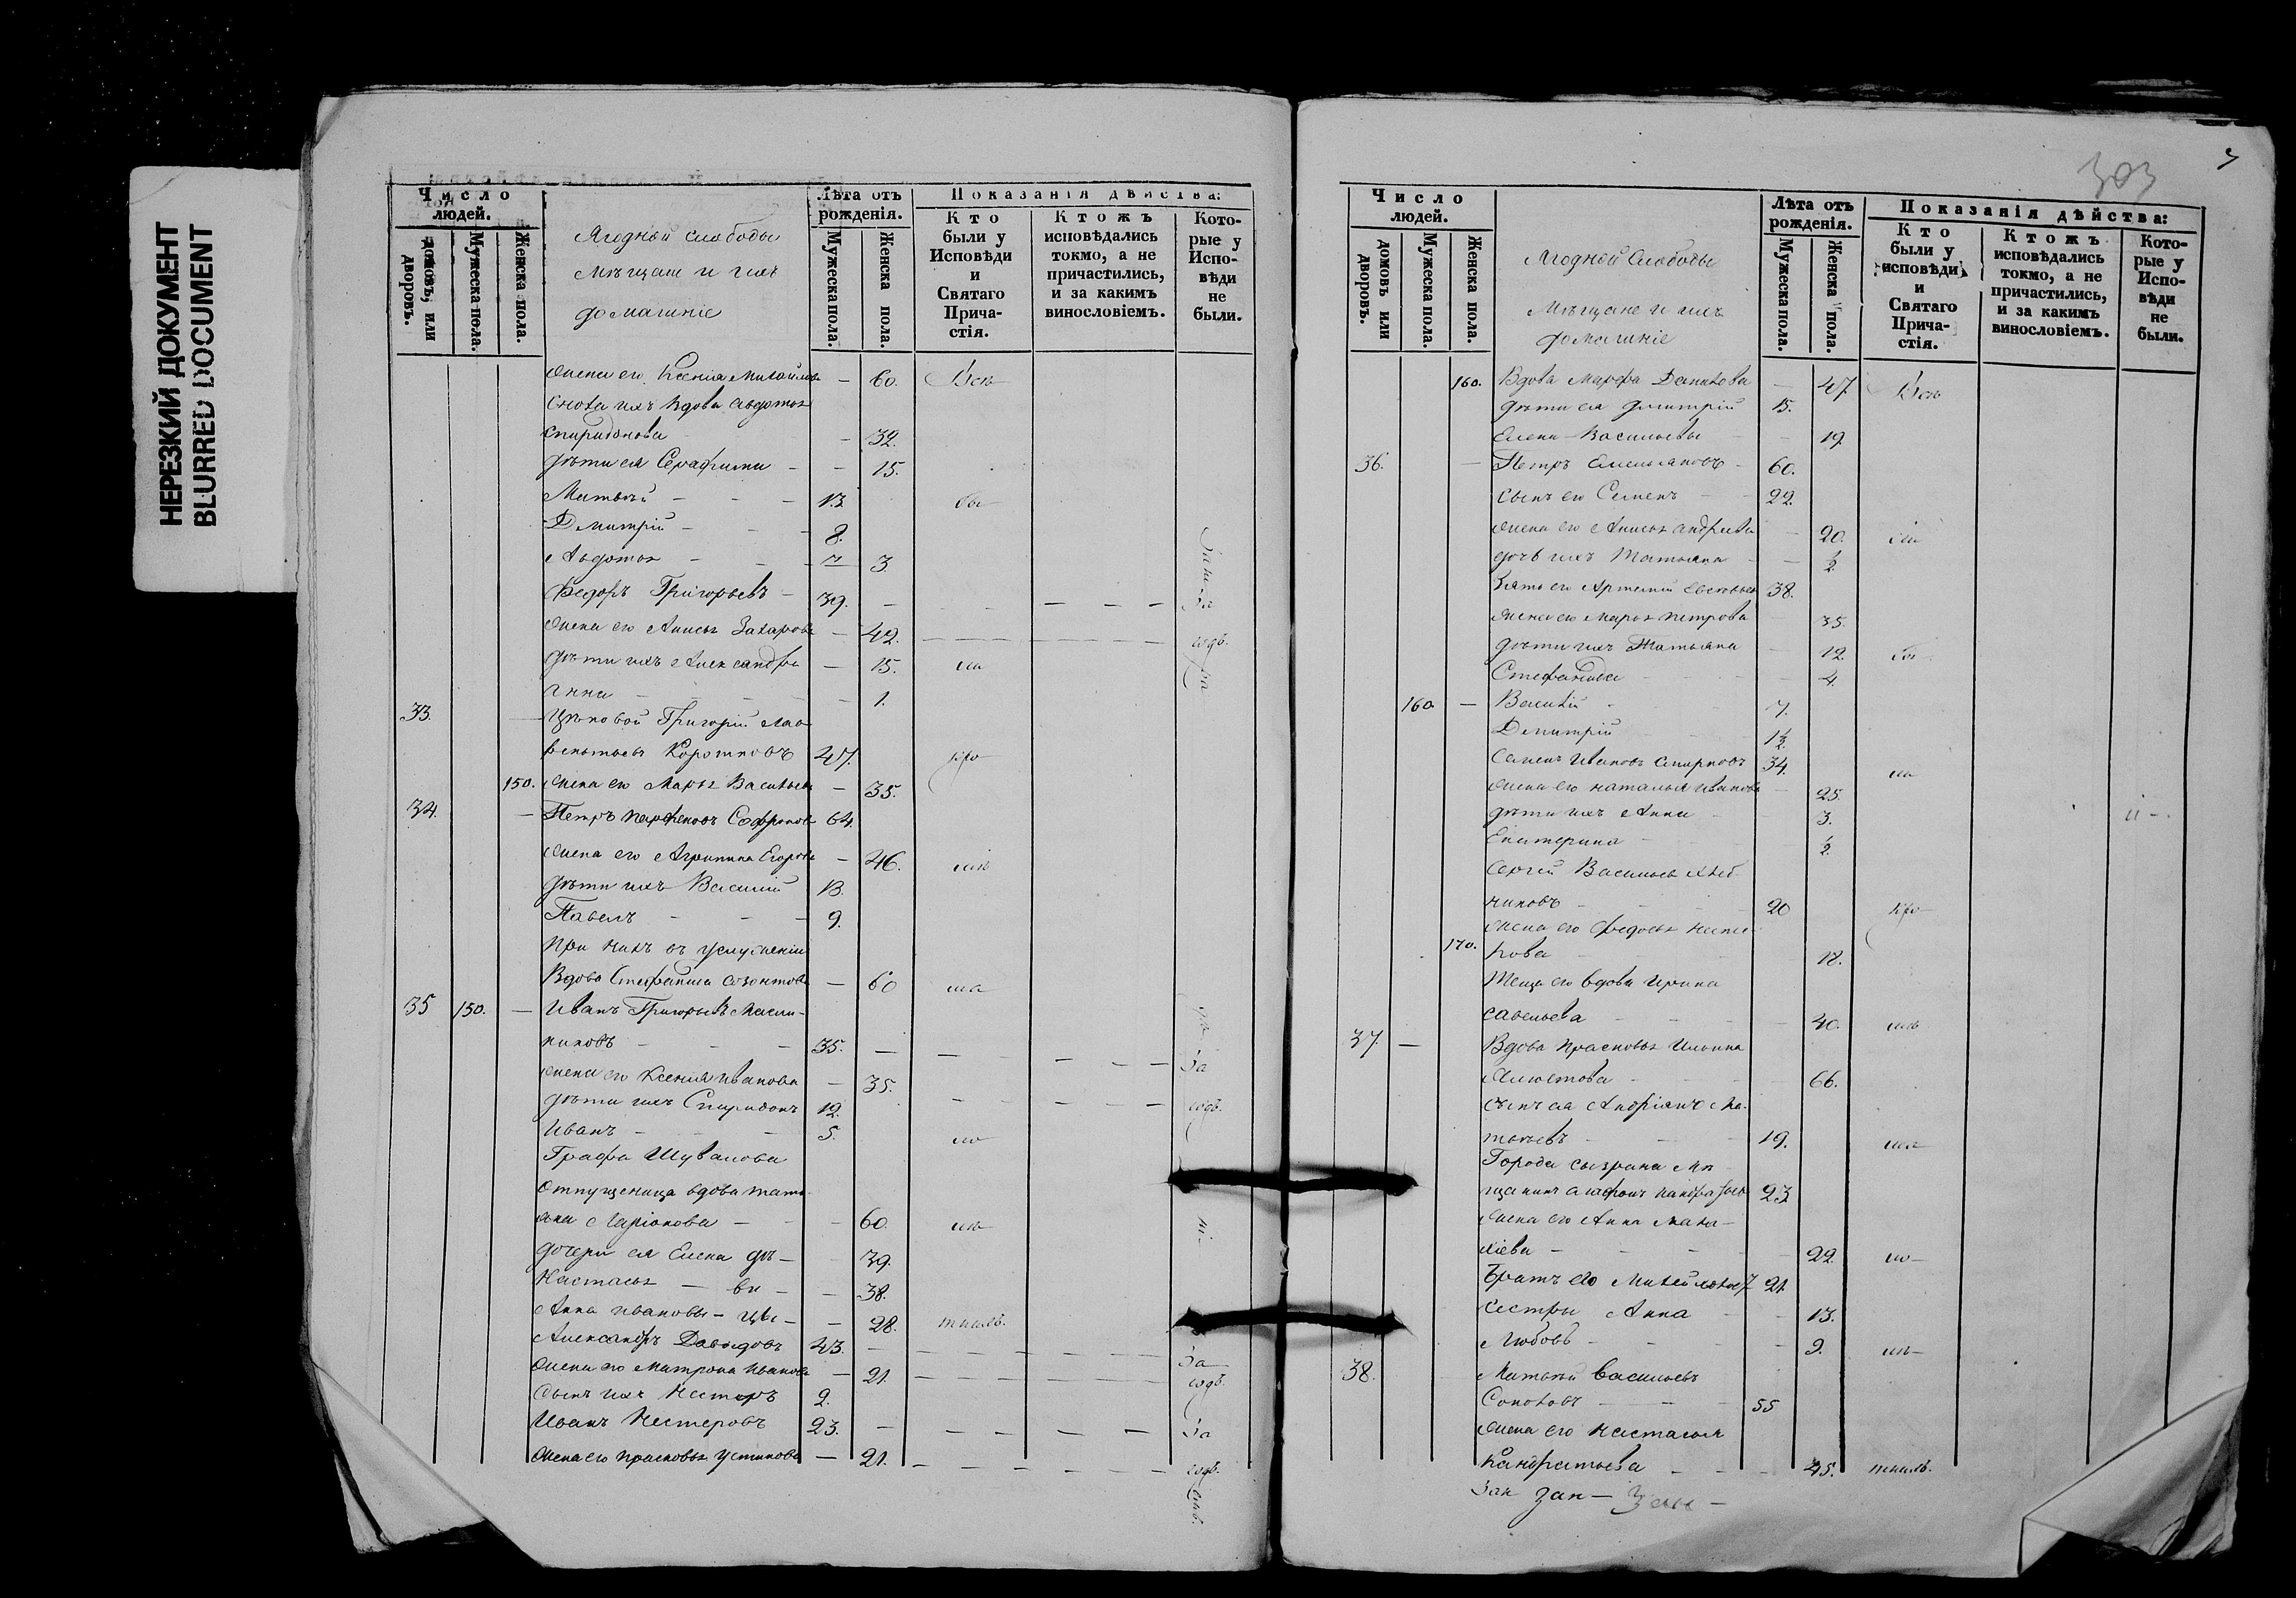 НЕРЕЗКИЙ ДОКУМЕНТ
BLURRED DOCUMENT
Число людей.
домовъ, или дворовъ.
Мужеска пола.
Женска пола.
Ягодной слободы
Мѣщане и ихъ
домашніе
Лѣта отъ рожденія.
Мужеска пола.
Женска пола.
Показанія дѣйства:
Кто были у Исповѣди и Святаго Причастія.
Ктожъ исповѣдались токмо, а не причастились, и за какимъ винословіемъ.
Которые у Исповѣди не были.
жена его Ксенія Михайлова — 60. Всѣ
Сноха ихъ вдова Авдотья
Спиридонова — 32.
дѣти ея Серафима — — 15.
Матвѣй — — — 13 бы
Дмитрій — — — 8.
Авдотья — — — 3
Федоръ Григорьевъ — 39. — — — — За
жена его Анисья Захарова — 42. — — — —
дѣти ихъ Александра — 15. ли
Анна — — — — 1.
33. — Цѣховой Григорій Лав-
рентьевъ Коротковъ 47.
150. жена его Марья Васильева — 35.
34. — Петръ Парфеновъ Софронов 64.
жена его Агрипина Егорова — 46.
дѣти ихъ Василій 13.
Павелъ — — — 9.
При нихъ въ услуженіи
Вдова Стефанида Созонтова — 60
35 150. — Иванъ Григорьевъ Масли-
никовъ — — — 35. — — — — За
жена его Ксенія Иванова — 35. — — — —
дѣти ихъ Спиридонъ 12.
Иванъ — — — 5.
Графа Шувалова
Отпущеница вдова Тать-
яна Ларіонова — — 60.
дочери ея Елена дѣ — — 39.
Настасья — ви — — 38.
Анна Ивановы — цы — — 28.
Александръ Давыдовъ 43. — — — — За
жена его Матрона Иванова — 21. — — — —
Сынъ ихъ Несторъ 2.
Иванъ Нестеровъ 23. — — — — За
жена его Прасковья Устинова — 21. — — — —
303
Число людей.
домовъ или дворовъ.
Мужеска пола.
Женска пола.
Ягодной Слободы
Мѣщане и ихъ
домашніе
Лѣта отъ рожденія.
Мужеска пола.
Женска пола.
Показанія дѣйства:
Кто были у исповѣди и Святаго Причастія.
Ктожъ исповѣдались токмо, а не причастились, и за какимъ винословіемъ.
Которые у Исповѣди не были.
160. Вдова Марфа Данилова — 47. Всѣ
дѣти ея Дмитрій 15.
Елена Васильевы — — 19.
36. — Петръ Емельяновъ — 60.
Сынъ его Семенъ — 22.
жена его Анисья Андреева — 20.
дочь ихъ Татьяна — — ½
Зять его Артемій 38.
жена его Марья Петрова 35.
дѣти ихъ Татьяна 12.
Стефанида — 4.
160 — Василій 7.
Дмитрій 1½
Семенъ Ивановъ Смирновъ 34.
жена его Наталья Иванова — 25.
дѣти ихъ Анна 3.
Екатерина ½
Сергей Васильевъ Хлѣб-
никовъ — 20
жена его Федосья Несте-
170. рова — 18.
Теща его вдова Ирина
Савельева — — — 40.
37. — Вдова Прасковья Ильина
66.
Сынъ ея Андріанъ Ма-
твѣевъ — — 19.
Города Сызрана Мѣ-
щанинъ 23
жена его Анна Мала-
хіева — — — — 22.
Братъ его 21.
Сестры Анна — 13.
Любовь — — — 9.
38. Матвѣй Васильевъ
Соколовъ — — — 55
жена его Настасья
Кандратьева — — — 45.